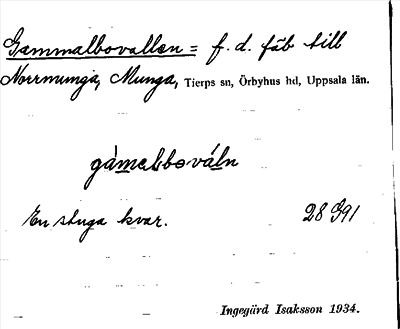 Gammalbovallen = f. d. fäb till
Norrmunga, Munga, Tierps sn, Örbyhus hd, Uppsala län.
gàmelbováln
En stuga kvar. 28 991
Ingegärd Isaksson 1934.